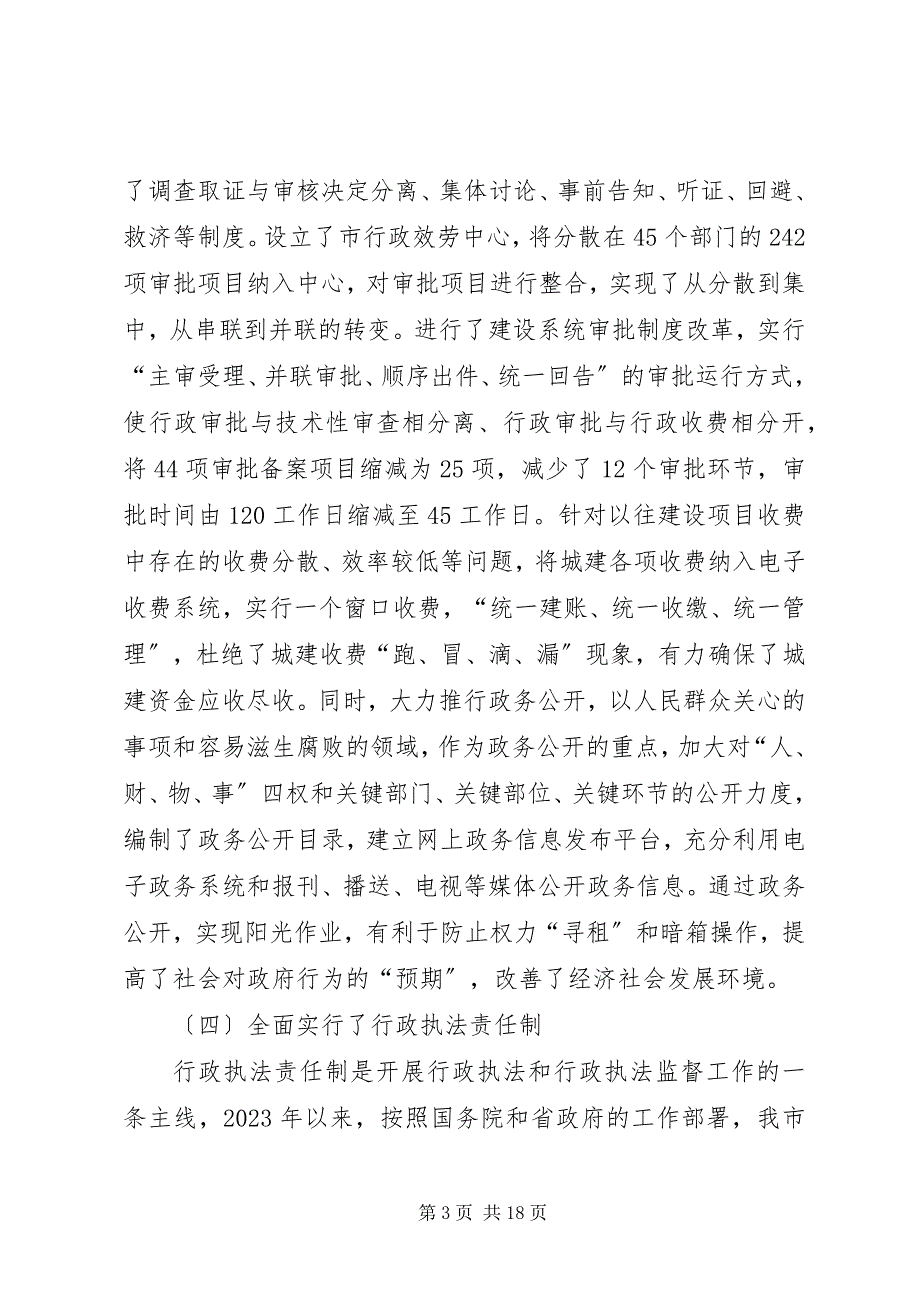 了调查取证与审核决定分离、集体讨论、事前告知、听证、回避、
救济等制度。设立了市行政效劳中心，将分散在 45 个部门的 242
项审批项目纳入中心，对审批项目进行整合，实现了从分散到集
中，从串联到并联的转变。进行了建设系统审批制度改革，实行
“主审受理、并联审批、顺序出件、统一回告〞的审批运行方式，
使行政审批与技术性审查相分离、行政审批与行政收费相分开，
将 44 项审批备案项目缩减为 25 项，减少了 12 个审批环节，审
批时间由 120 工作日缩减至 45 工作日。针对以往建设项目收费
中存在的收费分散、效率较低等问题，将城建各项收费纳入电子
收费系统，实行一个窗口收费，“统一建账、统一收缴、统一管
理〞，杜绝了城建收费“跑、冒、滴、漏〞现象，有力确保了城
建资金应收尽收。同时，大力推行政务公开，以人民群众关心的
事项和容易滋生腐败的领域，作为政务公开的重点，加大对“人、
财、物、事〞四权和关键部门、关键部位、关键环节的公开力度，
编制了政务公开目录，建立网上政务信息发布平台，充分利用电
子政务系统和报刊、播送、电视等媒体公开政务信息。通过政务
公开，实现阳光作业，有利于防止权力“寻租〞和暗箱操作，提
高了社会对政府行为的“预期〞，改善了经济社会发展环境。
〔四〕全面实行了行政执法责任制
行政执法责任制是开展行政执法和行政执法监督工作的一
条主线，2023 年以来，按照国务院和省政府的工作部署，我市
第 3 页 共 18 页